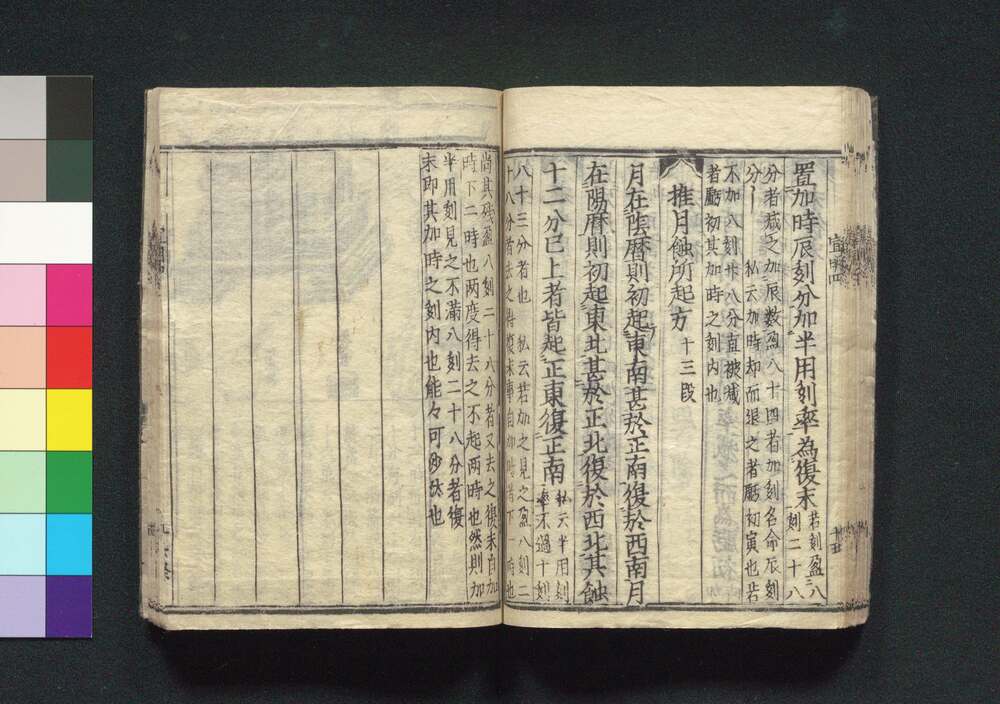 置加時辰刻分加半用刻率為復末
若刻盈八
刻二十八
分者減之加辰数盈八十四者加刻名命辰刻
分
私云加時却而退之者虧初寅也若
不加八刻廿八分直被減
者虧初其加時之刻内也
推月蝕所起方 十三段
月在陰暦則初起東南甚於正南復於西南月
在陽暦則初起東北甚於正北復於西北其蝕
十二分已上者皆起正東復正南
私云半用刻
率不過十刻
八十三分者也 私云若加之見之盈八刻二
十八分者去之
尚其残盈八刻二十八分者又去之復末自加
時下二時也両度得去之不起両時也然則加
半用刻見之不満八刻二十八分者復
末即其加時之刻内也能々可沙汰也
宣明四